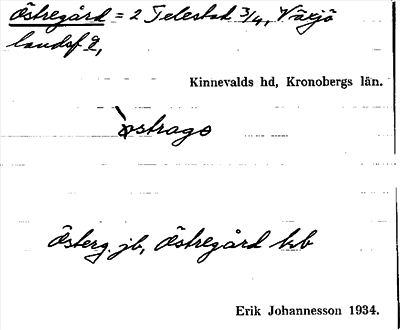 Östregård = 2 Telestad 3/4, Växjö
landsf g,
Kinnevalds hd, Kronobergs län.
östrago
Österg. jb, Östregård kb
Erik Johannesson 1934.